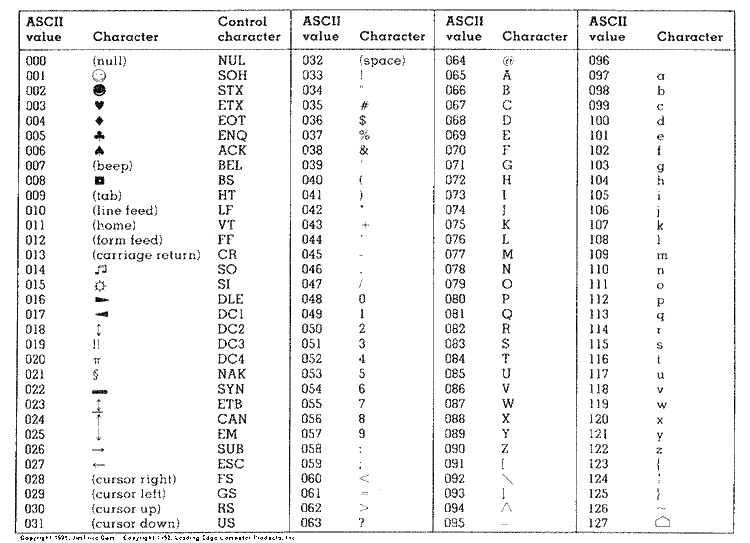 ASCII value Character Control character ASCII value Character ASCII value Character ASCII value Character
000 (null) NUL 032 (space) 064 @ 096
001 ☺ SOH 033 ! 065 A 097 a
002 ☻ STX 034 " 066 B 098 b
003 ♥ ETX 035 # 067 C 099 c
004 ♦ EOT 036 $ 068 D 100 d
005 ♣ ENQ 037 % 069 E 101 e
006 ♠ ACK 038 & 070 F 102 f
007 (beep) BEL 039 ' 071 G 103 g
008 ◘ BS 040 ( 072 H 104 h
009 (tab) HT 041 ) 073 I 105 i
010 (line feed) LF 042 * 074 J 106 j
011 (home) VT 043 + 075 K 107 k
012 (form feed) FF 044 ' 076 L 108 l
013 (carriage return) CR 045 - 077 M 109 m
014 ♫ SO 046 . 078 N 110 n
015 ☼ SI 047 / 079 O 111 o
016 ► DLE 048 0 080 P 112 p
017 ◄ DC1 049 1 081 Q 113 q
018 ↕ DC2 050 2 082 R 114 r
019 !! DC3 051 3 083 S 115 s
020 π DC4 052 4 084 T 116 t
021 § NAK 053 5 085 U 117 u
022 ▬ SYN 054 6 086 V 118 v
023 ↨ ETB 055 7 087 W 119 w
024 ↑ CAN 056 8 088 X 120 x
025 ↓ EM 057 9 089 Y 121 y
026 → SUB 058 : 090 Z 122 z
027 ← ESC 059 ; 091 [ 123 {
028 (cursor right) FS 060 < 092 \ 124 ¦
029 (cursor left) GS 061 = 093 ] 125 }
030 (cursor up) RS 062 > 094 ^ 126 ~
031 (cursor down) US 063 ? 095 _ 127 ⌂
Copyright 1982, Leading Edge Computer Products, Inc.